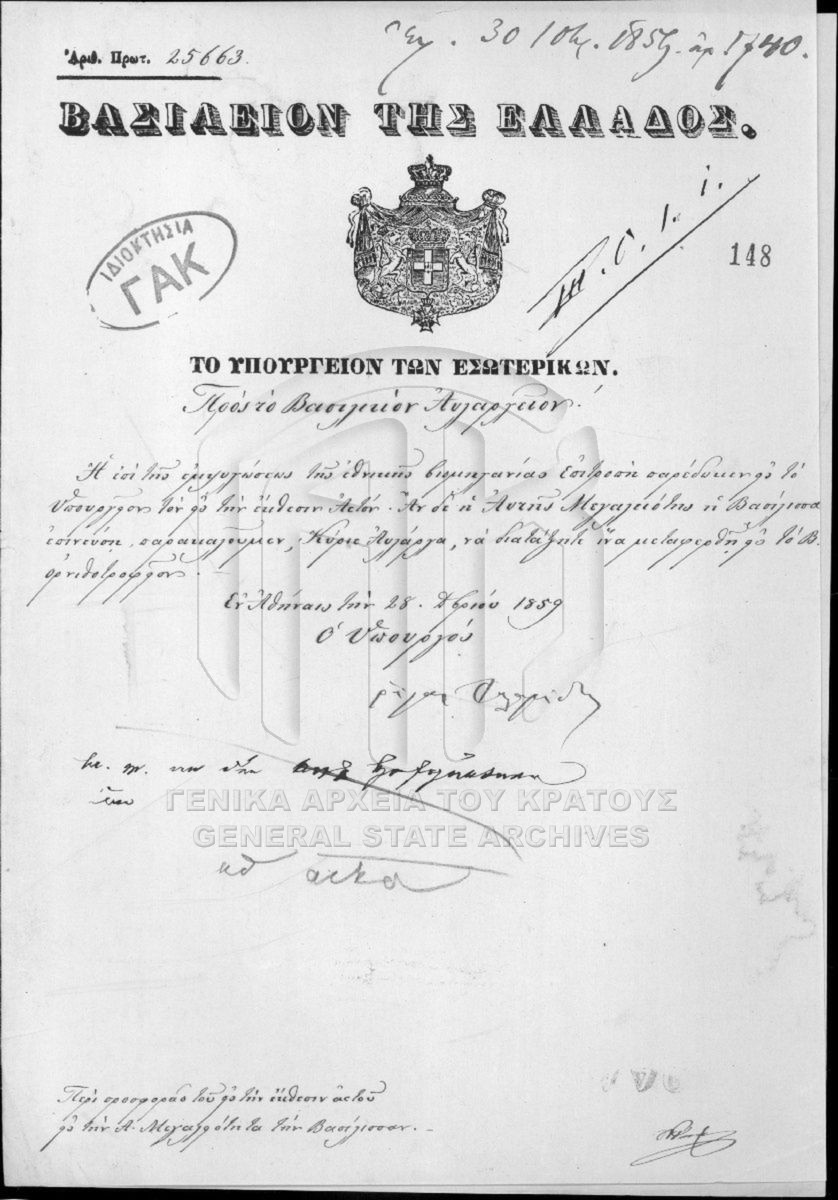 Ἀριθ. Πρωτ. 25663.
30 1859 1740.
ΒΑΣΙΛΕΙΟΝ ΤΗΣ ΕΛΛΑΔΟΣ.
ΙΔΙΟΚΤΗΣΙΑ
ΓΑΚ
148
ΤΟ ΥΠΟΥΡΓΕΙΟΝ ΤΩΝ ΕΣΩΤΕΡΙΚΩΝ.
Πρὸς τὸ Βασιλικὸν Αὐλαρχεῖον.
Ἡ ἐπὶ τῆς ἐμψυχώσεως τῆς ἐθνικῆς βιομηχανίας Ἐπιτροπὴ παρέδωκεν εἰς τὸ
Ὑπουργεῖον τὸν εἰς τὴν ἔκθεσιν Ἀετόν. Ἂν δὲ ἡ Αὐτῆς Μεγαλειότης ἡ Βασίλισσα
ἐπινεύσῃ, παρακαλοῦμεν, Κύριε Αὐλάρχα, νὰ διατάξητε ἵνα μεταφερθῇ εἰς τὸ Β.
ὀρνιθοτροφεῖον.
Ἐν Ἀθήναις τὴν 28 1859
Ὁ Ὑπουργός
ΓΕΝΙΚΑ ΑΡΧΕΙΑ ΤΟΥ ΚΡΑΤΟΥΣ
GENERAL STATE ARCHIVES
Περὶ προσφορᾶς τοῦ εἰς τὴν ἔκθεσιν ἀετοῦ
εἰς τὴν Α. Μεγαλειότητα τὴν Βασίλισσαν.